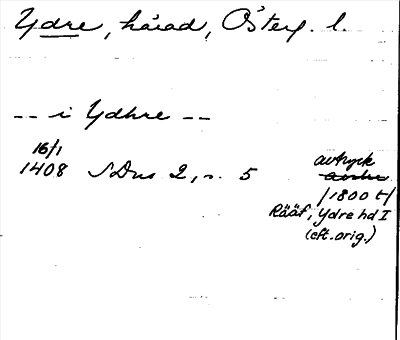 Ydre, härad, Österg. l.
-- i Ydhre --
16/1
1408 SDns 2, s. 5
avtryck
avskr
/1800 t/
Rääf, Ydre hd I
(eft. orig.)